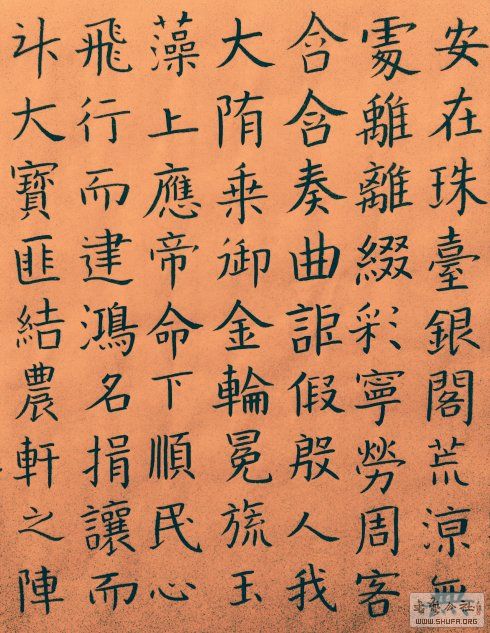 安在珠臺銀閣荒涼無
處離離綴彩寧勞周客
含含奏曲詎假殷人我
大隋乘御金輪冕旒玉
藻上應帝命下順民心
飛行而建鴻名捐讓而
升大寶匪結農軒之陣
WWW.SHUFA.ORG